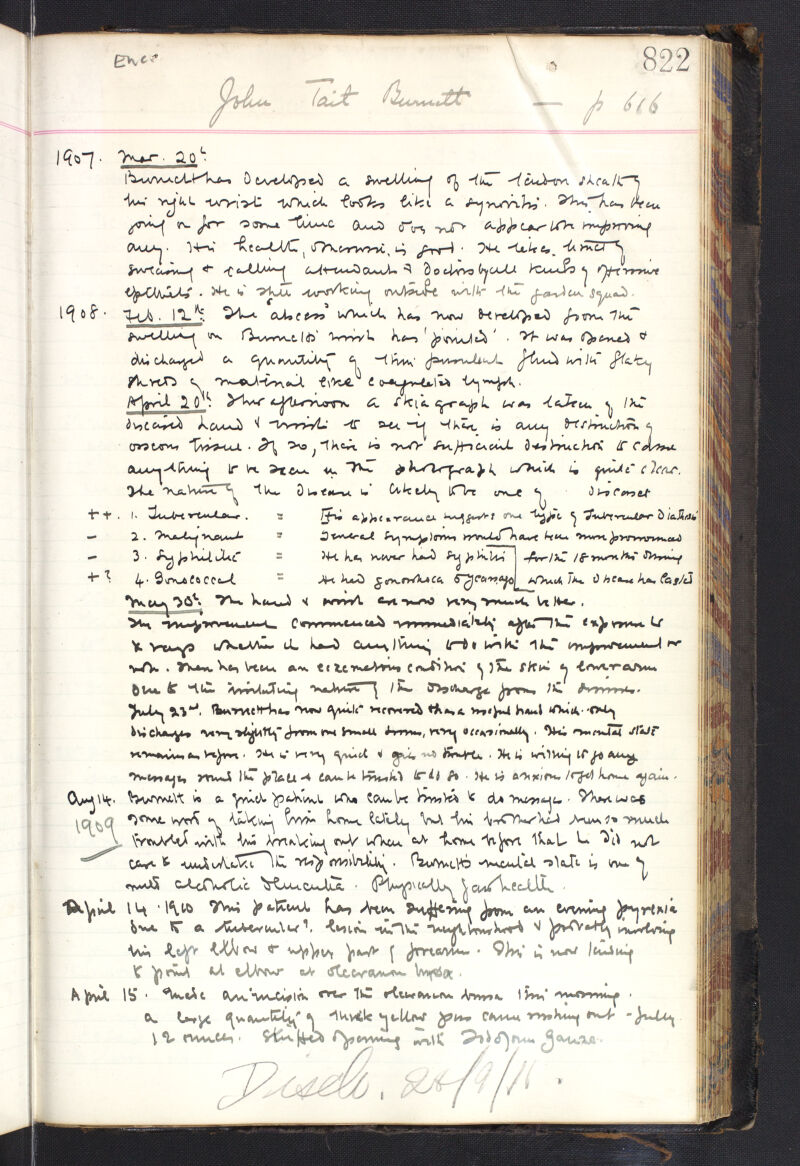 822
John Tait Burnett — p 616
1907. Mar. 20th
Burnett has developed a swelling of the tendon sheath of
his right wrist which looks like a synovitis. This has been
going on for some time and does not appear to be improving
any. His health, otherwise, is good. He takes times of
swearing & calling attendants & Doctors by all kinds of offensive
epithets. He is still working outside with the garden squad.
1908. Feb. 12th. The "abscess" which has now developed from the
swelling on Burnett's wrist has 'pointed'. It was opened &
discharged a quantity of thin purulent fluid with flaky
shreds of material like coagulated lymph.
April 20th. This afternoon a skiagraph was taken of the
diseased hand & wrist to see if there is any destruction of
osseous tissue. If so, there is not sufficient destruction to cause
anything to be seen in the photograph which is quite clear.
The nature of the disease is likely to be one of diseases
++. 1. Tubercular. = His appearance suggests one type of Tubercular Diathesis
– 2. Malignant = General symptoms would have been more pronounced
– 3. Syphilitic = He has never had syphilis for the 18 months during
+? 4. Gonococcal = He had gonorrhoea 5 years ago which the disease has lasted
May 30th. The hand & wrist are now very much better.
The improvement commenced immediately after the exposure to
X rays whether it had anything to do with the improvement or
not. There has been an eczematous condition of the skin of lower arm
due to the irritating nature of the discharge from the sinuses.
July 23rd. Burnett has now quite recovered & has a useful hand which only
discharges very slightly from one small sinus, very occasionally. His mental state
remains as before. He is very quiet & gives no trouble. He is willing to go any
messages round the place & can be trusted to do so. He is anxious to get home again.
Aug 14. Burnett is a quiet patient who can be trusted to do messages. There was
1909 some word of taking him home lately but his brother had been so much
troubled with his breaking out when at home before that he did not
care to undertake the responsibility. Burnett's mental state is one of
mild alcoholic dementia. Physically fair health.
April 14. 1910 This patient has been suffering from an evening pyrexia
due to a tubercular? lesion in the neighbourhood & probably involving
his left elbow & upper part of forearm. This is now tending
to point at elbow at olecranon bursa.
April 15. Made an incision over the olecranon bursa this morning.
a large quantity of thick yellow pus came rushing out - fully
12 ounces. Stuffed opening with Iodoform Gauze.
Disch.